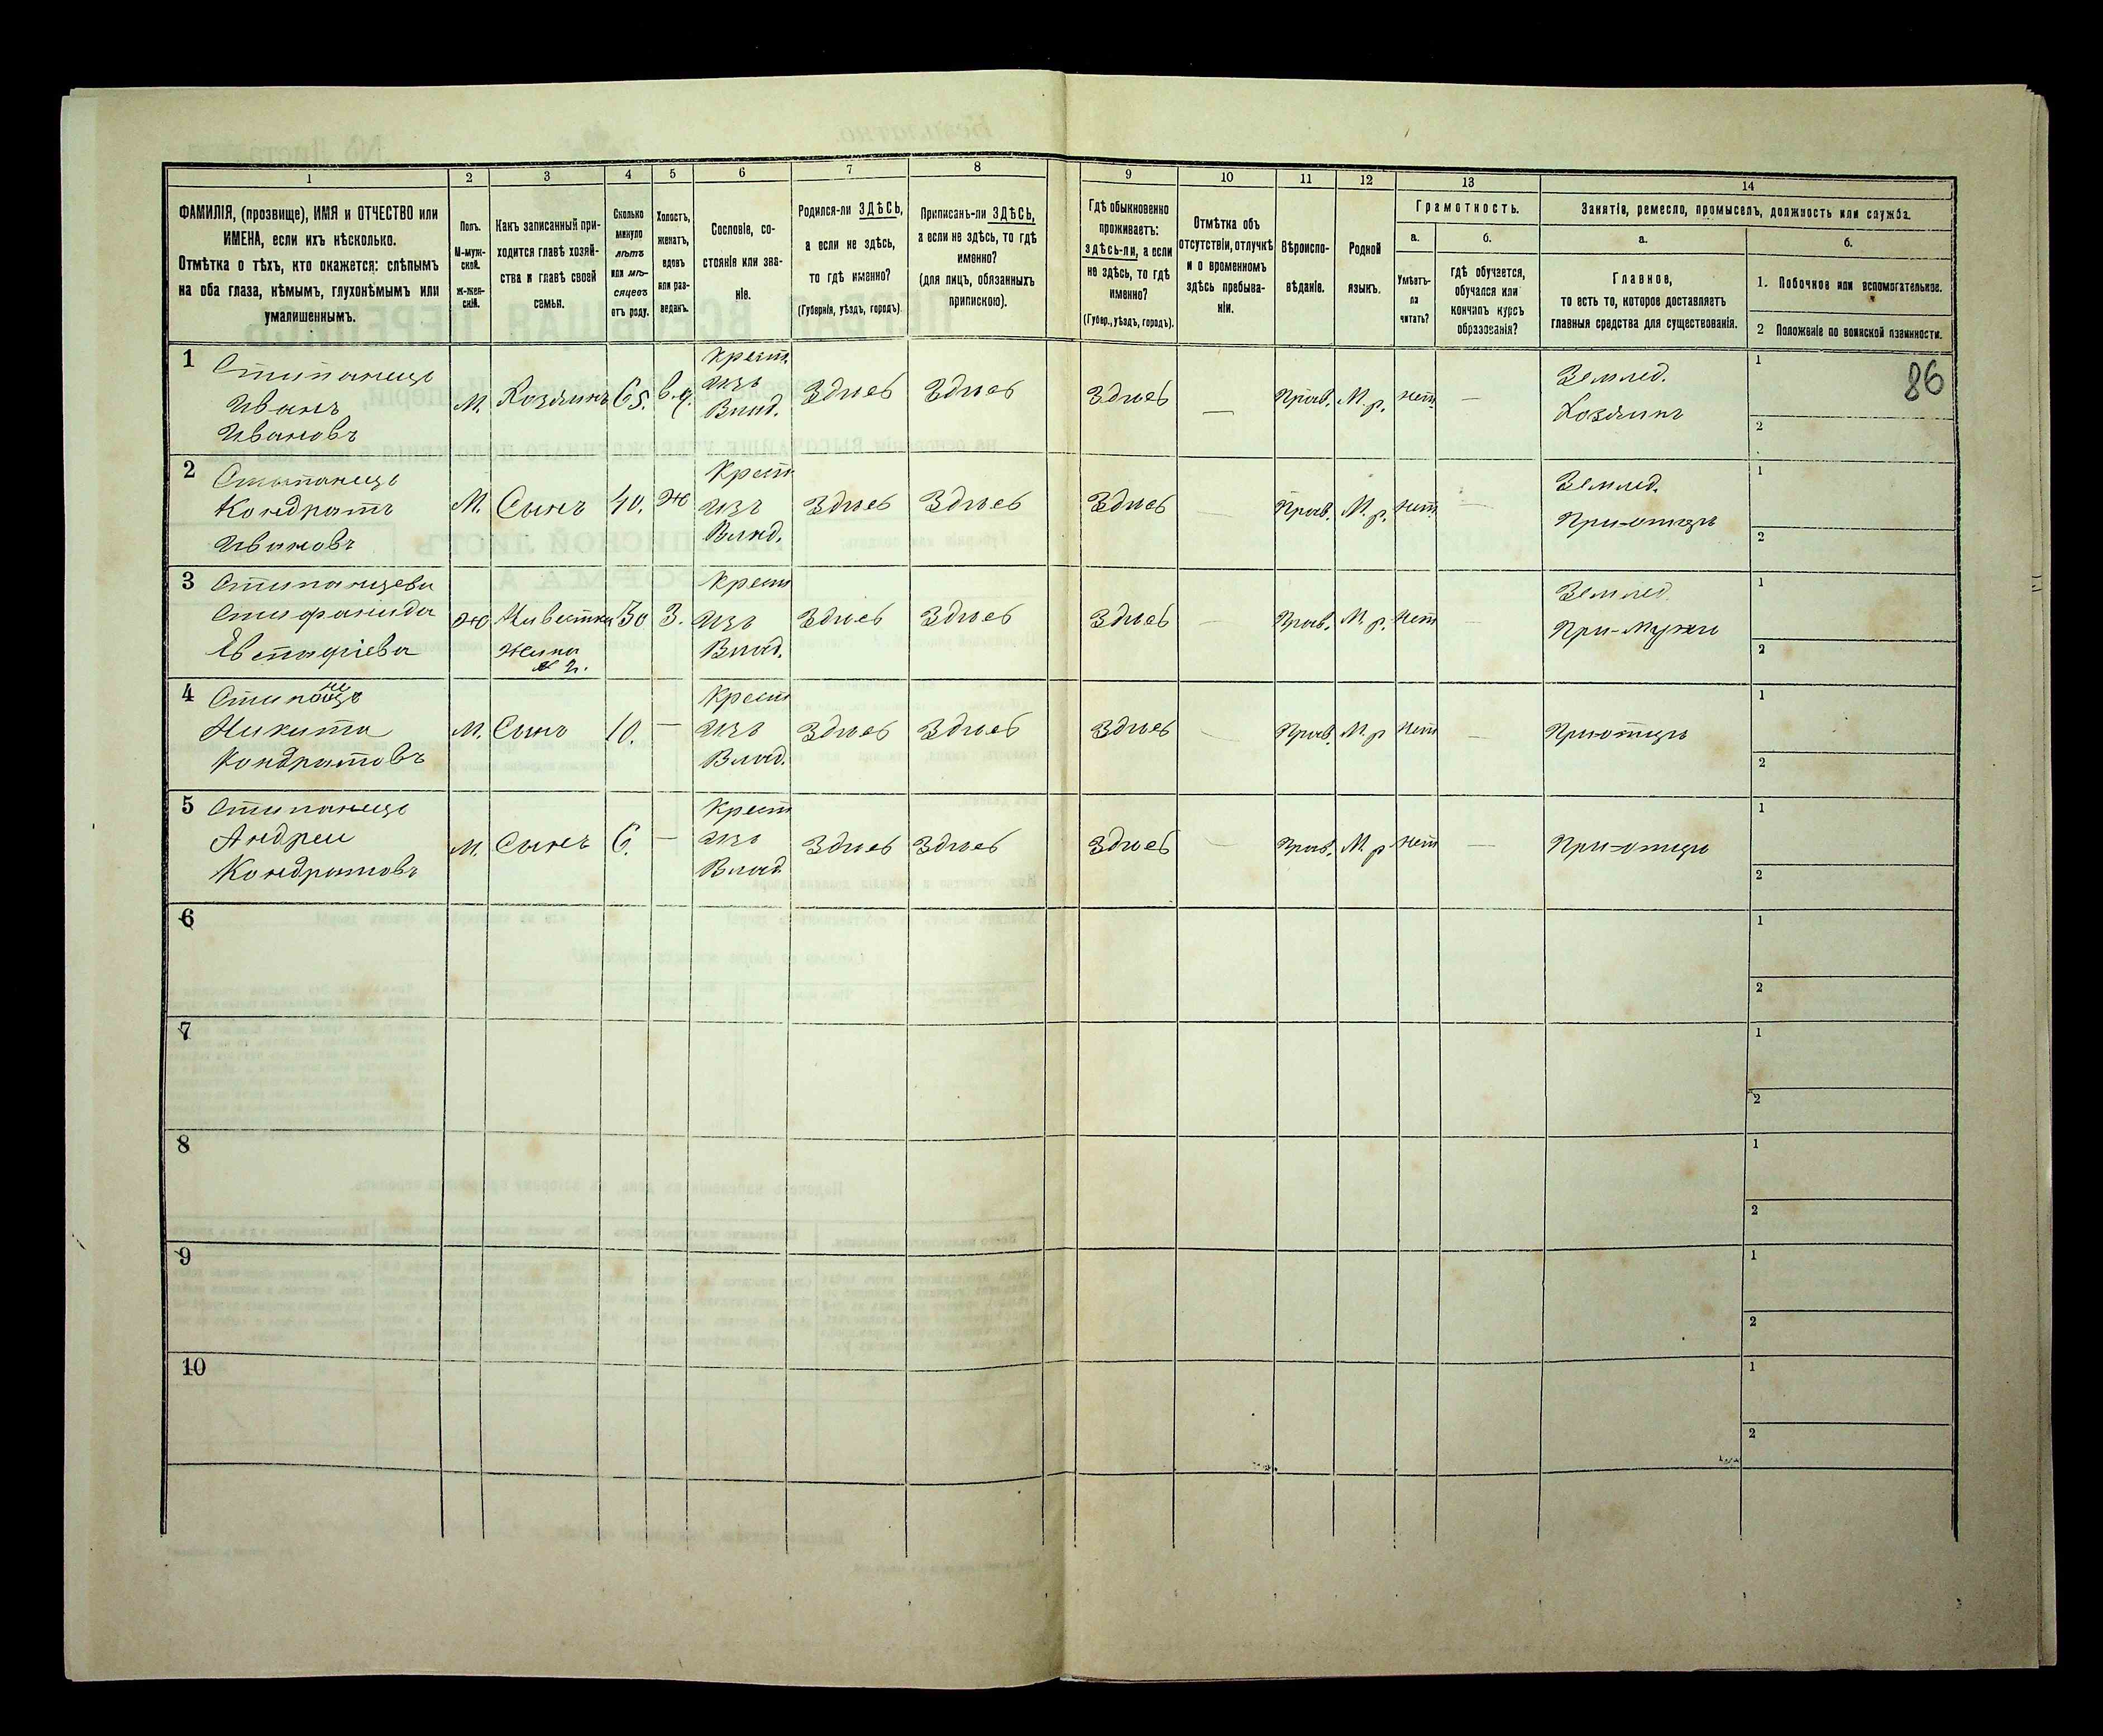 1 2 3 4 5 6 7 8 9 10 11 12 13 14
ФАМИЛІЯ, (прозвище), ИМЯ и ОТЧЕСТВО или
ИМЕНА, если ихъ нѣсколько.
Отмѣтка о тѣхъ, кто окажется: слѣпымъ
на оба глаза, нѣмымъ, глухонѣмымъ или
умалишеннымъ.
Полъ.
М-муж-
ской.
Ж-жен-
скій.
Какъ записанный при-
ходится главѣ хозяй-
ства и главѣ своей
семьи.
Сколько
минуло
лѣтъ
или мѣ-
сяцевъ
отъ роду.
Холостъ,
женатъ,
вдовъ
или раз-
веденъ.
Сословіе, со-
стояніе или зва-
ніе.
Родился-ли ЗДѢСЬ,
а если не здѣсь,
то гдѣ именно?
(Губернія, уѣздъ, городъ).
Приписанъ-ли ЗДѢСЬ,
а если не здѣсь, то гдѣ
именно?
(для лицъ, обязанныхъ
припискою).
Гдѣ обыкновенно
проживаетъ:
здѣсь-ли, а если
не здѣсь, то гдѣ
именно?
(Губер., уѣздъ, городъ).
Отмѣтка объ
отсутствіи, отлучкѣ
и о временномъ
здѣсь пребыва-
ніи.
Вѣроиспо-
вѣданіе.
Родной
языкъ.
Грамотность.
а.
Умѣетъ-
ли
читать?
б.
гдѣ обучается,
обучался или
кончилъ курсъ
образованія?
Занятіе, ремесло, промыселъ, должность или служба.
а.
Главное,
то есть то, которое доставляетъ
главныя средства для существованія.
б.
1. Побочное или вспомогательное.
2 Положеніе по воинской повинности.
86
1 Степанець
Иванъ
Ивановъ
М. Хозяинъ 65. в.д. Крест. изъ Влад. Здѣсь Здѣсь Здѣсь — Прав. М. р. нет. — Землед. Хозяинъ 1 2
2 Степанець
Кондратъ
Ивановъ
М. Сынъ 40. ж Крест изъ Влад. Здѣсь Здѣсь Здѣсь — Прав. М. р. нет. — Землед. При-отцѣ 1 2
3 Степанцева
Стефанида
Евстафіева
ж Невестка Жена № 2. 30 З. Крест изъ Влад. Здѣсь Здѣсь Здѣсь — Прав. М. р. нет — Землед. При-мужи 1 2
4 Степанець
Никита
Кондратовъ
М. Сынъ 10. — Крест изъ Влад. Здѣсь Здѣсь Здѣсь — Прав. М. р нет — При-отцѣ 1 2
5 Степанець
Андреи
Кондратовъ
М. Сынъ 6. — Крест изъ Влад Здѣсь Здѣсь Здѣсь — Прав. М. р нет — При-отцѣ 1 2
6 1 2
7 1 2
8 1 2
9 1 2
10 1 2